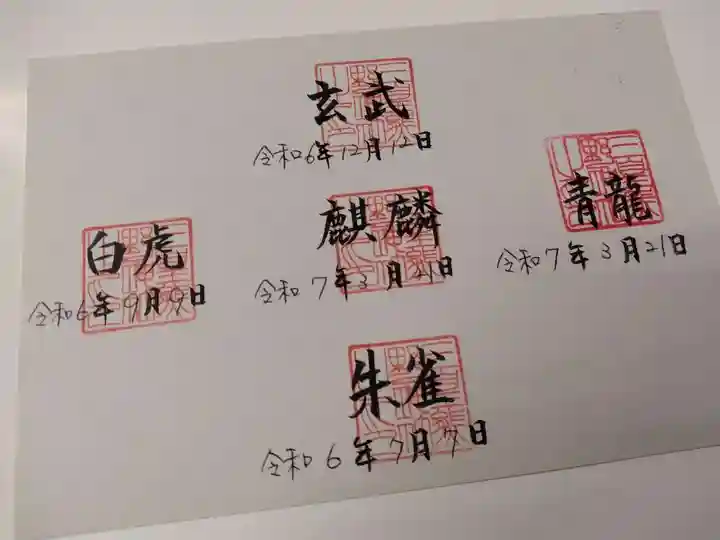 玄武
令和6年12月12日
青龍
令和7年3月21日
麒麟
令和7年3月21日
白虎
令和6年9月9日
朱雀
令和6年7月7日